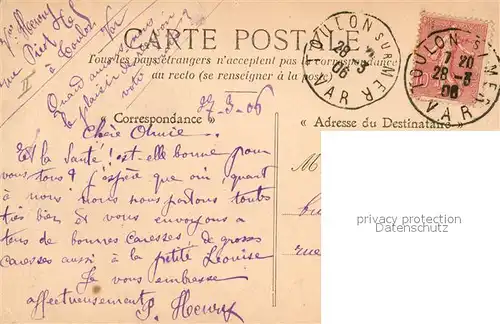 CARTE POSTALE
Tous les pays étrangers n'acceptent pas la correspondance
au recto (se renseigner à la poste)
TOULON SUR MER
28 -3
06
VAR
TOULON SUR MER
7 20
28 -3
06
VAR
" Correspondance "
" Adresse du Destinataire "
27-3-06
Chère
Et la Santé ! est-elle bonne pour
vous tous ? J'espère que oui, quant
à nous nous portons toutes
très bien et vous envoyons a
tous de bonnes caresses, de grosses
caresses aussi à la petite Léonise
Je vous embrasse
affectueusement P. Henry
Quand aurons
le plaisir de
votre
Henry
rue
à Toulon
Var
M
rue
personal data
privacy protection